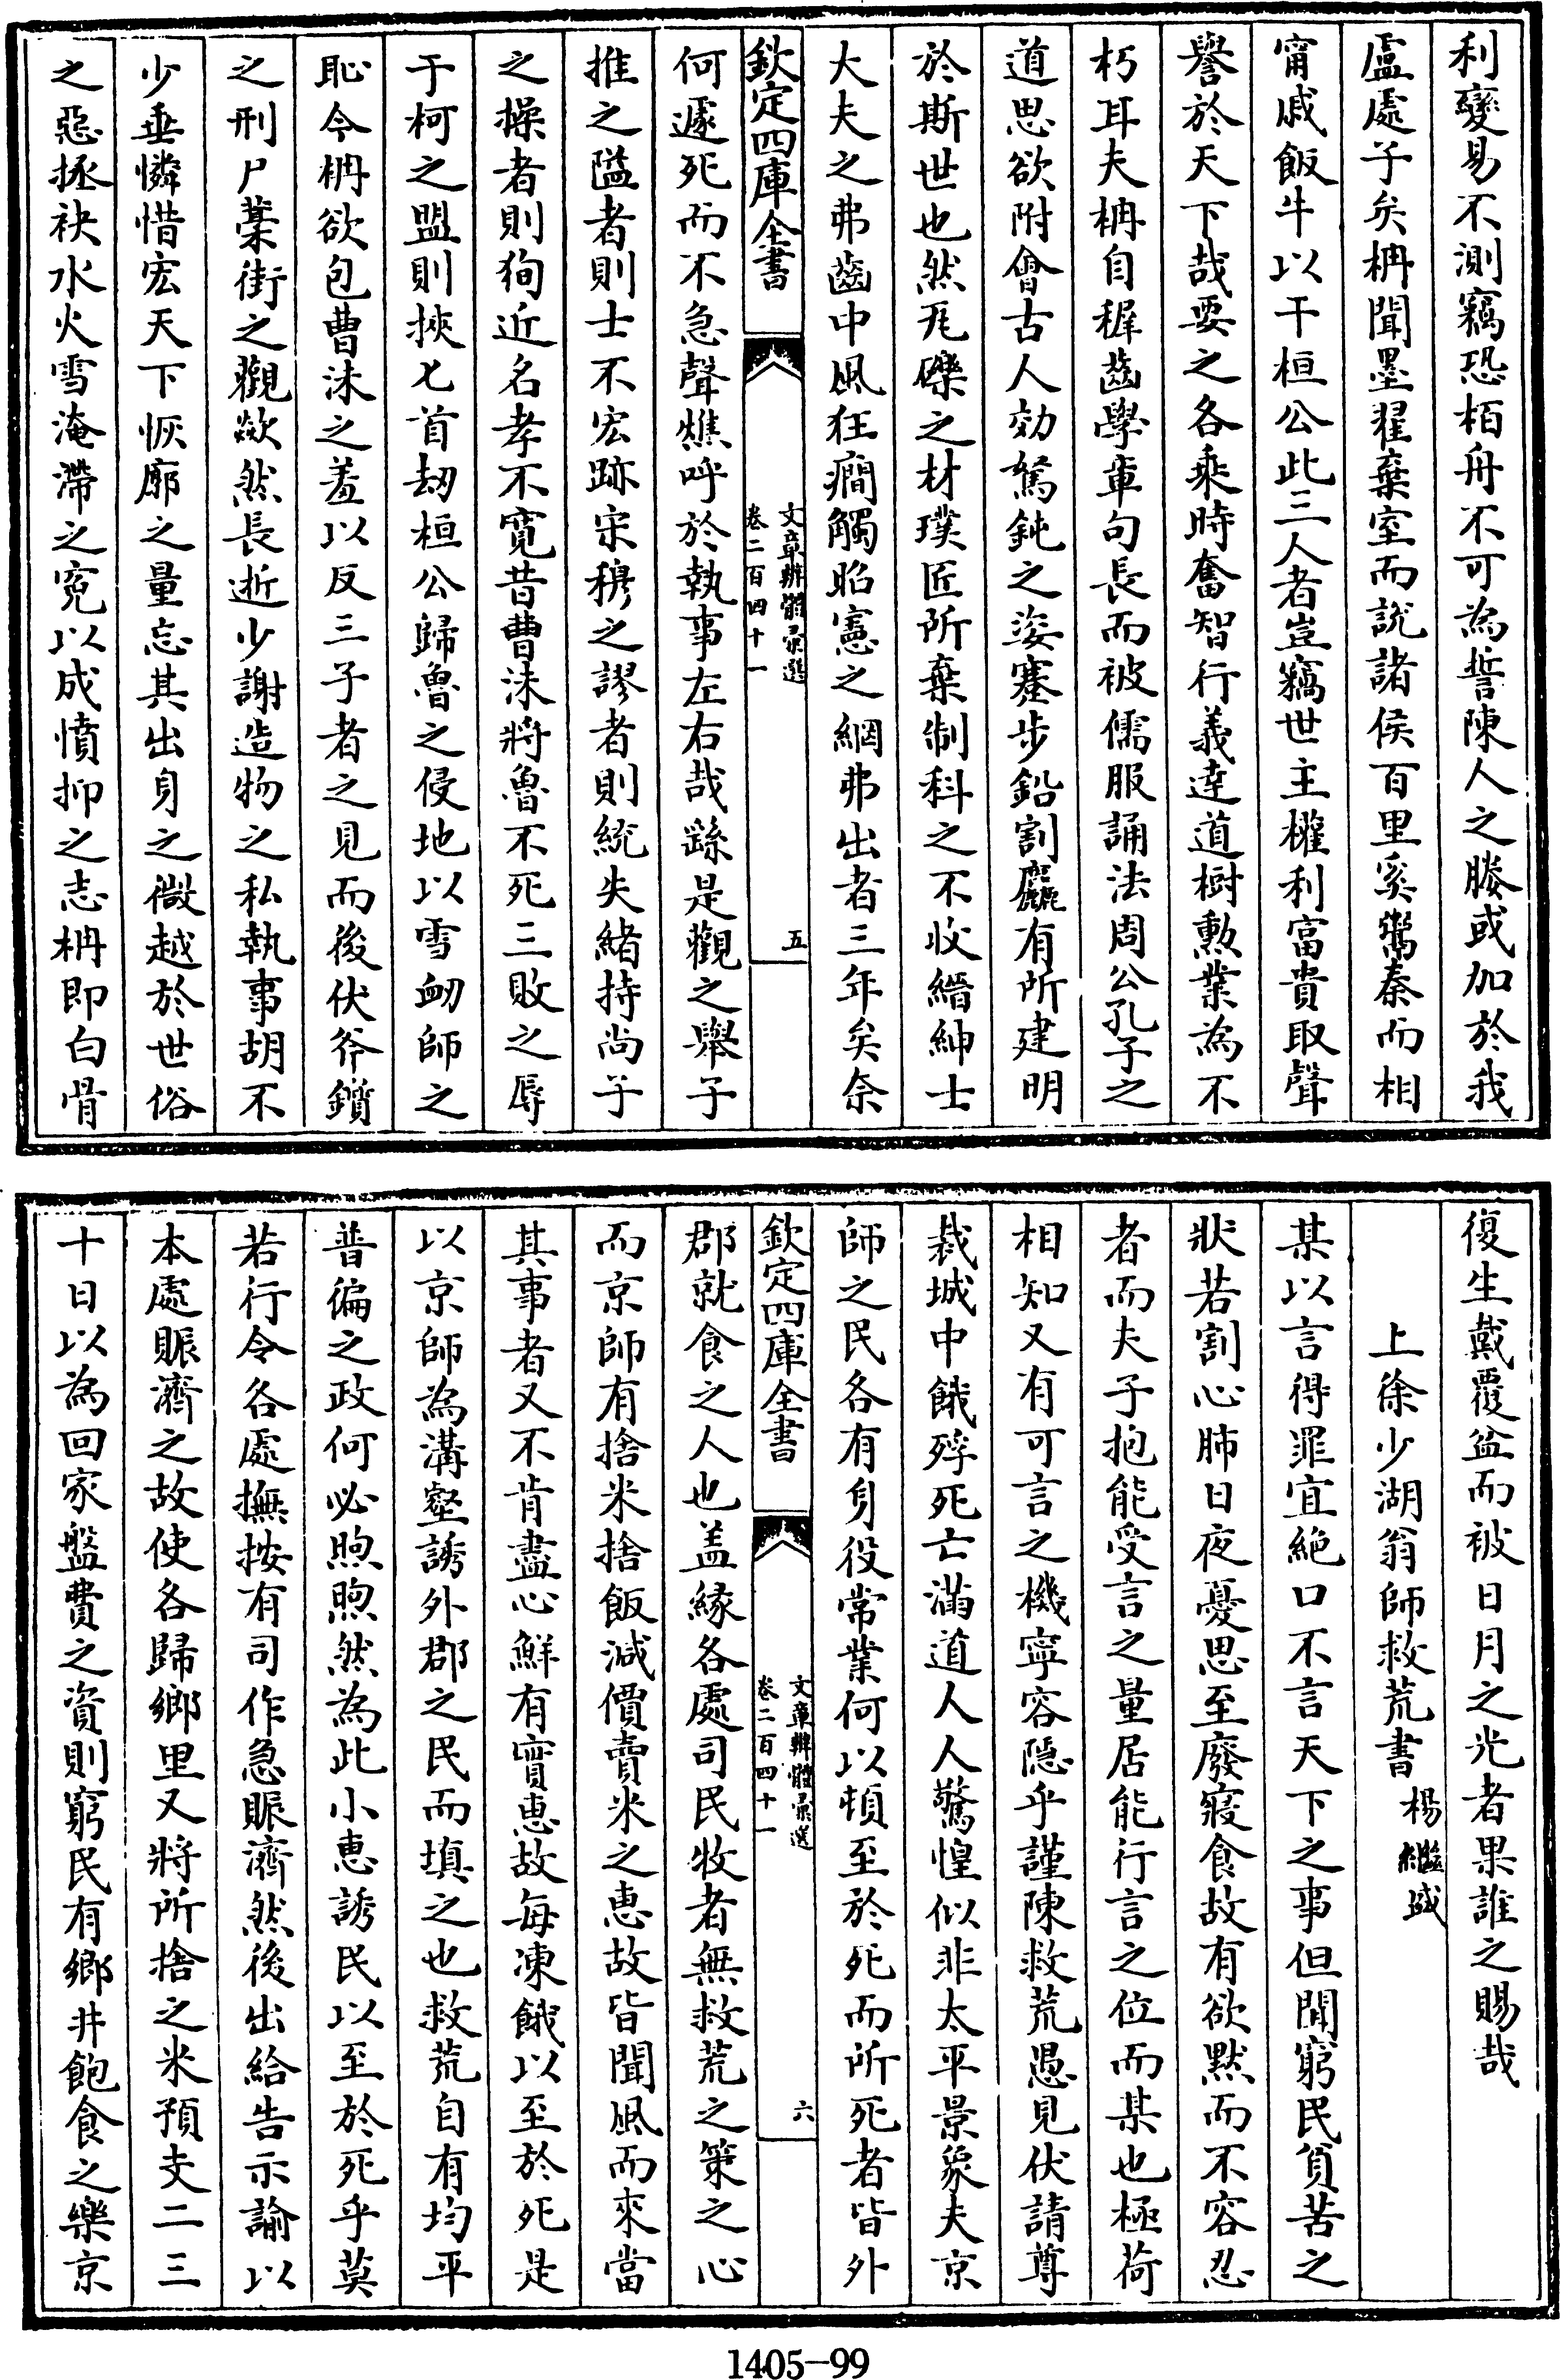 利變易不測竊恐栢舟不可為誓陳人之媵或加於我
盧處子矣柟聞墨翟棄室而説諸侯百里奚鬻秦而相
甯戚飯牛以干桓公此三人者豈竊世主權利富貴取聲
譽於天下哉要之各乘時奮智行義逹道樹勲業為不
朽耳夫柟自穉齒學車句長而被儒服誦法周公孔子之
道思欲附㑹古人効駑鈍之姿蹇步鉛割麤有所建明
於斯世也然瓦礫之材璞匠所棄制科之不收縉紳士
大夫之弗齒中風狂癇觸昭憲之網弗出者三年矣奈
欽定四庫全書
文章辨體彚選
卷二百四十一
五
何遽死而不急聲燋呼於執事左右哉繇是觀之舉子
推之隘者則士不宏跡宋穆之謬者則統失緒持尚子
之操者則狥近名孝不寛昔曹沬將魯不死三敗之辱
于柯之盟則挾匕首刼桓公歸魯之侵地以雪衂師之
恥今柟欲包曹沬之羞以反三子者之見而後伏斧鑕
之刑尸藁街之觀歘然長逝少謝造物之私執事胡不
少垂憐惜宏天下恢廓之量忘其出身之微越於世俗
之惡拯袂水火雪淹滯之寃以成憤抑之志柟即白骨
復生戴覆盆而被日月之光者果誰之賜哉
上徐少湖翁師救荒書 楊繼盛
某以言得罪宜絶口不言天下之事但聞窮民貧苦之
狀若割心肺日夜憂思至廢寢食故有欲黙而不容忍
者而夫子抱能受言之量居能行言之位而某也極荷
相知又有可言之機寧容隠乎謹陳救荒愚見伏請尊
裁城中餓殍死亡滿道人人驚惶似非太平景象夫京
師之民各有身役常業何以頓至於死而所死者皆外
欽定四庫全書
文章辨體彚選
卷二百四十一
六
郡就食之人也盖緣各處司民牧者無救荒之策之心
而京師有捨米捨飯減價賣米之惠故皆聞風而來當
其事者又不肯盡心鮮有實惠故每凍餓以至於死是
以京師為溝壑誘外郡之民而填之也救荒自有均平
普徧之政何必煦煦然為此小惠誘民以至於死乎莫
若行令各處撫按有司作急賑濟然後出給告示諭以
本處賑濟之故使各歸鄉里又將所捨之米預支二三
十日以為回家盤費之資則窮民有鄉井飽食之樂京
1405-99